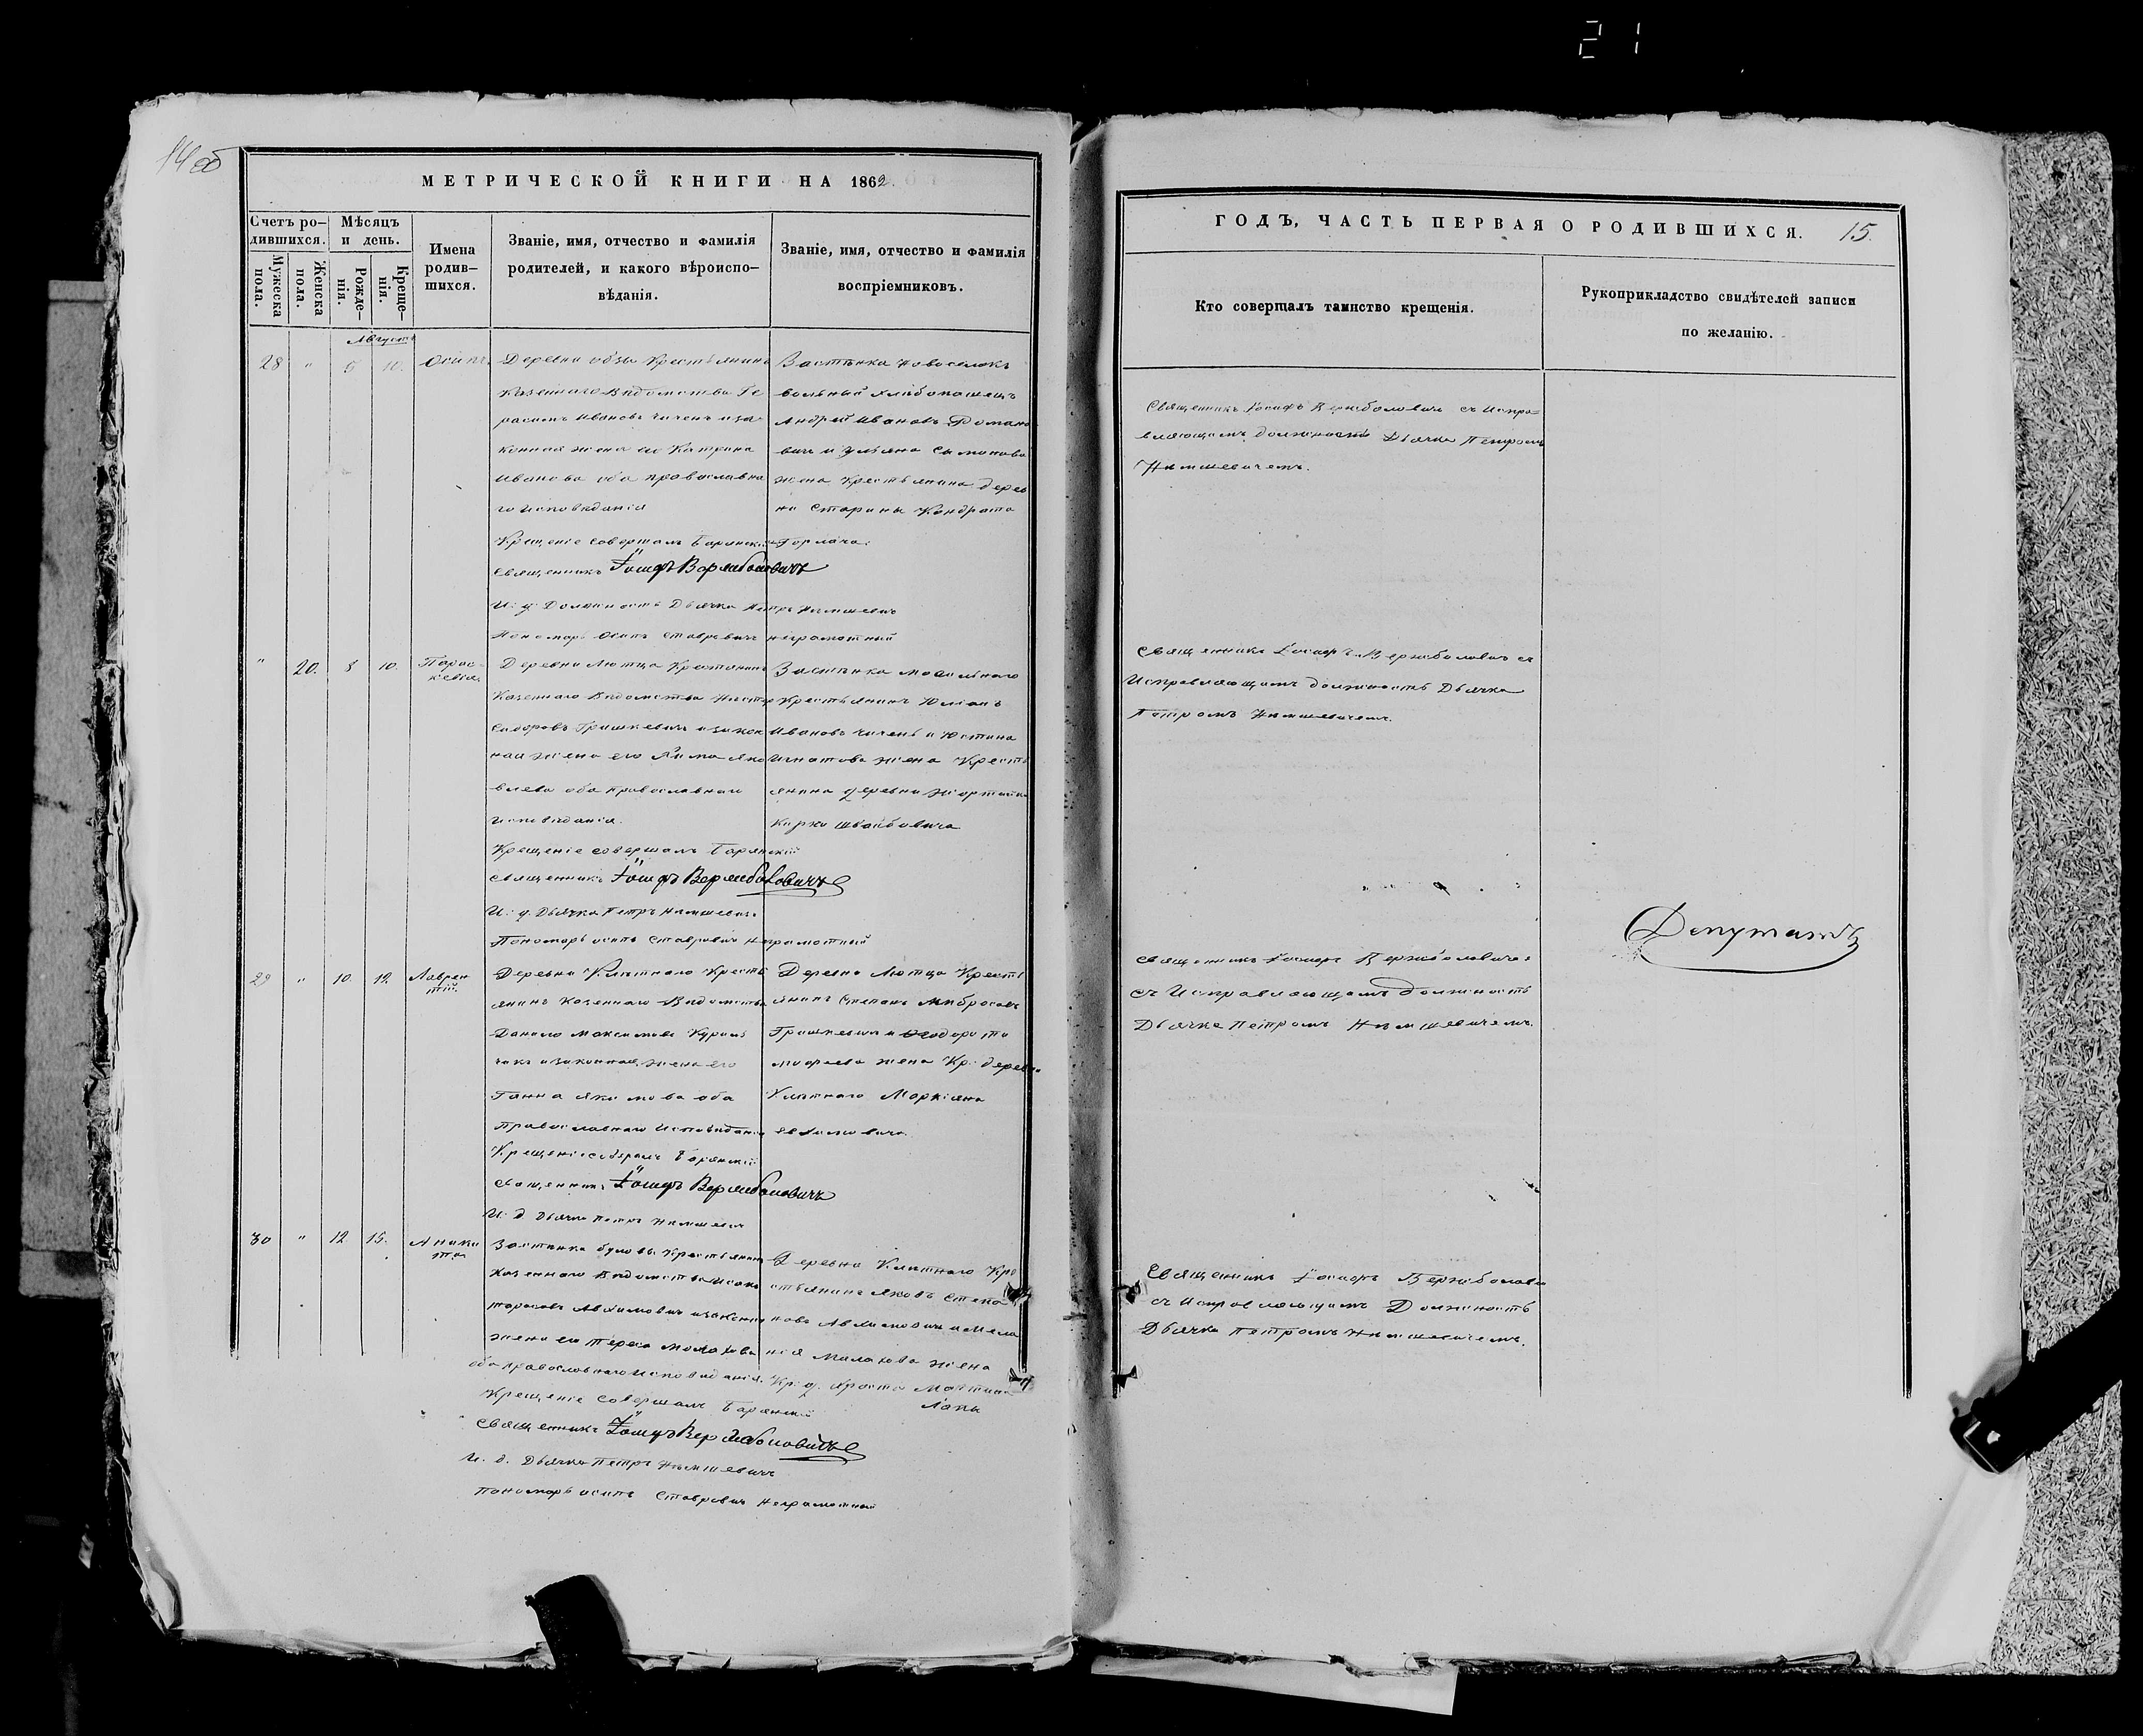 21
14 об
МЕТРИЧЕСКОЙ КНИГИ НА 1862.
Счетъ ро-
дившихся.
Мѣсяцъ
и день.
Мужеска
пола.
Женска
пола.
Рожде-
нія.
Креще-
нія.
Имена
родив-
шихся.
Званіе, имя, отчество и фамилія
родителей, и какого вѣроиспо-
вѣданія.
Званіе, имя, отчество и фамилія
воспріемниковъ.
Августъ
28 " 5 10. Осипъ
Деревни Крестьянинъ
Казеннаго Вѣдомства Ге
расимъ Ивановъ Чичень и за
конная жена его Катрина
Иванова оба православна
го Исповѣданія
Крещеніе совершалъ Барянскій
Священникъ Іосифъ Вержболовичъ
И: д: Должность Дьячка Петръ Нѣмшевичъ
Пономарь Осипъ Ставровичъ неграмотный
Застѣнка Новоселокъ
вольный хлѣбопашецъ
Андрей Ивановъ Романо
вичъ и Ульяна Симонова
жена Крестьянина дерев
ни Старины Кондрата
Горлача:
" 20. 8 10. Парас-
кевія.
Деревни Лютца Крестьянинъ
Казеннаго Вѣдомства Нестер
Сидоровъ Гришкевичъ и закон
ная жена его Яко
влева оба православнаго
Исповѣданія.
Крещеніе совершалъ Барянскій
Священникъ Іосифъ Вержболовичъ
И: д: Дьячка Петръ Нѣмшевичъ
Пономарь Осипъ Ставровичъ неграмотный
Застѣнка
Крестьянинъ Юліанъ
Ивановъ Чичень и Юстина
Игнатова жена Кресть
янина деревни
Карпа
29 " 10. 12. Лаврен
тій.
Деревни Клѣтнаго Кресть
янинъ Казеннаго Вѣдомства
Данило Максимовъ
и законная жена его
Ганна Якимова оба
Православнаго Исповѣданія
Крещеніе совершалъ Барянскій
Священникъ Іосифъ Вержболовичъ
И: д: Дьячка Петръ Нѣмшевичъ
Деревни Лютца Кресть
янинъ Степанъ Амбросовъ
Гришкевичъ и Ѳеодора
жена Кр: деревни
Клѣтнаго Маркіяна
Евхимовича.
30 " 12 15. Аники
та
Застѣнка Крестьянинъ
Казеннаго Вѣдомства Исакъ
Тарасовъ Авхимовичъ и законная
жена его Тереса Малахова
оба православнаго Исповѣданія.
Крещеніе совершалъ Барянскій
Священникъ Іосифъ Вержболовичъ
И. д. Дьячка Петръ Нѣмшевичъ
Пономарь Осипъ Ставровичъ неграмотный
Деревни Клѣтнаго Кре
стьянинъ Яковъ Степа
новъ Авхимовичъ и Мела
нія Малахова жена
Кр: д.
Лапы
ГОДЪ, ЧАСТЬ ПЕРВАЯ О РОДИВШИХСЯ.
15.
Кто совершалъ таинство крещенія.
Рукоприкладство свидѣтелей записи
по желанію.
Священникъ Іосифъ Вержболовичъ съ Испра-
вляющимъ должность Дьячка Петромъ
Нѣмшевичемъ.
Священникъ Іосифъ Вержболовичъ съ
Исправляющимъ должность Дьячка
Петромъ Нѣмшевичемъ.
Священникъ Іосифъ Вержболовичъ
съ Исправляющимъ должность
Дьячка Петромъ Нѣмшевичемъ.
Депутатъ
Священникъ Іосифъ Вержболовичъ
съ Исправляющимъ Должность
Дьячка Петромъ Нѣмшевичемъ.